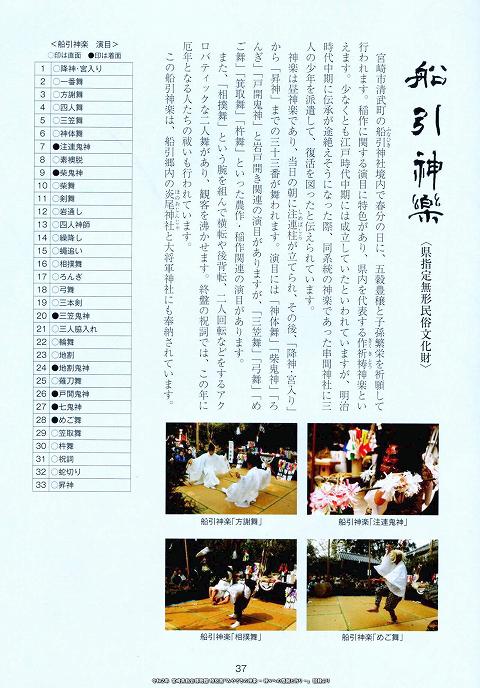 船引神楽
〈県指定無形民俗文化財〉
宮崎市清武町の船引神社境内で春分の日に、五穀豊穣と子孫繁栄を祈願して
行われます。稲作に関する演目に特色があり、県内を代表する作祈祷神楽とい
えます。少なくとも江戸時代中期には成立していたといわれていますが、明治
時代中期に伝承が途絶えそうになった際、同系統の神楽であった串間神社に三
人の少年を派遣して、復活を図ったと伝えられています。
神楽は昼神楽であり、当日の朝に注連柱が立てられ、その後、「降神・宮入り」
から「昇神」までの三十三番が舞われます。演目には「神体舞」「柴鬼神」「ろ
んぎ」「戸開鬼神」と岩戸開き関連の演目がありますが、「三笠舞」「弓舞」「め
ご舞」「箕取舞」「杵舞」といった農作・稲作関連の演目があります。
また、「相撲舞」という腕を組んで横転や後背転、二人回転などをするアク
ロバティックな二人舞があり、観客を沸かせます。終盤の祝詞では、この年に
厄年となる人たちの祓いも行われています。
この船引神楽は、船引郷内の炎尾神社と大将軍神社にも奉納されています。
<船引神楽 演目>
○印は直面 ●印は着面
1 ○降神・宮入り
2 ○一番舞
3 ○方謝舞
4 ○四人舞
5 ○三笠舞
6 ○神体舞
7 ●注連鬼神
8 ○素襖脱
9 ●柴鬼神
10 ○柴舞
11 ○剣舞
12 ○岩通し
13 ○四人神師
14 ○繰降し
15 ○蝿追い
16 ○相撲舞
17 ○ろんぎ
18 ○弓舞
19 ○三本剣
20 ●三笠鬼神
21 ○三人脇入れ
22 ○輪舞
23 ○地割
24 ●地割鬼神
25 ○薙刀舞
26 ●戸開鬼神
27 ●七鬼神
28 ●めご舞
29 ○笠取舞
30 ○杵舞
31 ○祝詞
32 ○蛇切り
33 ○昇神
船引神楽「方謝舞」
船引神楽「注連鬼神」
船引神楽「相撲舞」
船引神楽「めご舞」
37